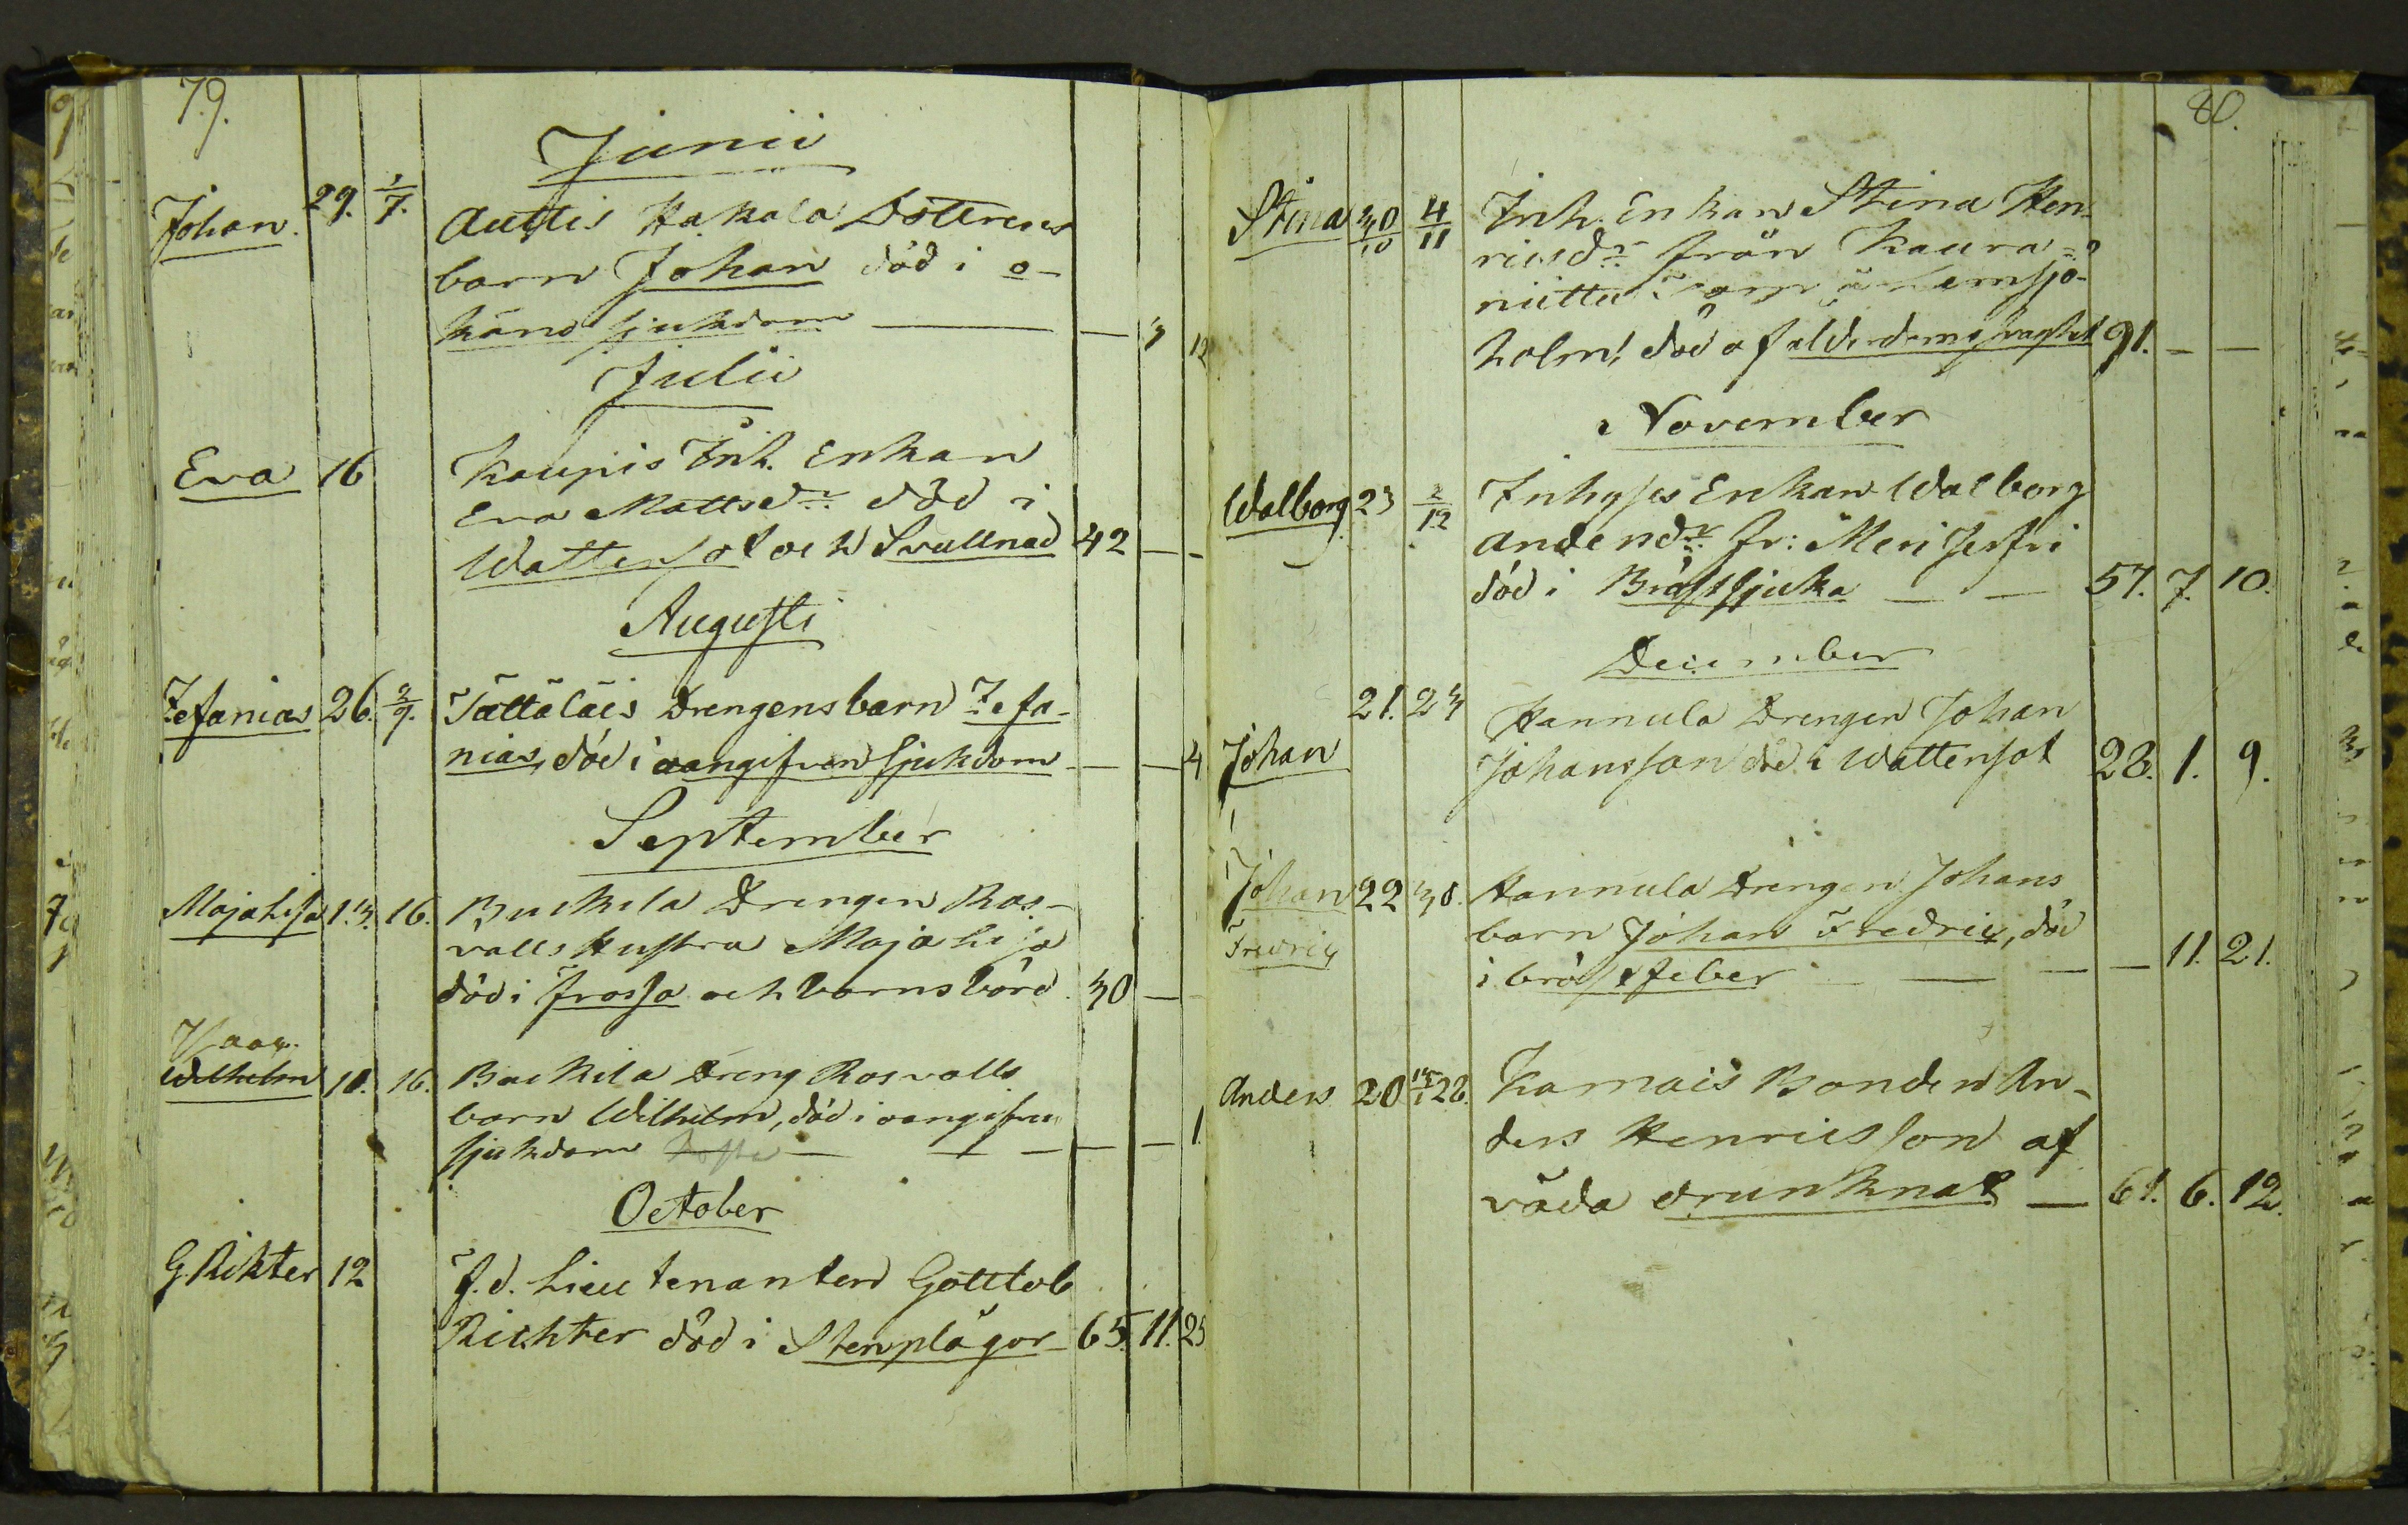 79.
Junii
Johan. 29. 1/7. Auttis Hakala Dottrens
barn Johan död i o-
känd sjukdom — — 3 12
Julii
Eva 16 Kaupis Inh. Enkan
Eva Mattsdr död i
Wattensot och Svullnad 42 — —
Augusti
Zefanias 26. 2/9. Tättäläis Drengens barn Zefa-
nias, död i oangifven sjukdom — — 4
September
Maja Lisa 13. 16. Buckila Drengen Ros-
valls Hustru Maja Lisa
död i frossa och barnsbörd. 30 —
Isaac
Wilhelm 10. 16. Backila Dreng Rosvalls
barn Wilhelm, död i oangifven
sjukdom — — — — 1.
October
G. Rikter 12 f.d. Lieutenanten Gottlob
Richter död i Stenplågor 65. 11. 25
80.
Stina 30/10 4/11 Inh. Enkan Stina Hen-
ricsdr från Kaura-
niittu Lemsjö-
holm, död af ålderdomsvaghet 91. — —
November
Walborg 23 2/12 Inhyses Enkan Walborg
Andersdr fr: Meri
död i Bröstsjuka — — 57. 7. 10.
December
21. 23 Hannula Drengen Johan
Johan Johansson död i Wattensot 28. 1. 9.
Johan 22 30. Hannula Drengen Johans
Fredric barn Johan Fredric, död
i bröstfeber — — — — 11. 21.
Anders 20 28. Karnais Bonden An-
ders Henricsson af
våda drunknat — 61. 6. 12.